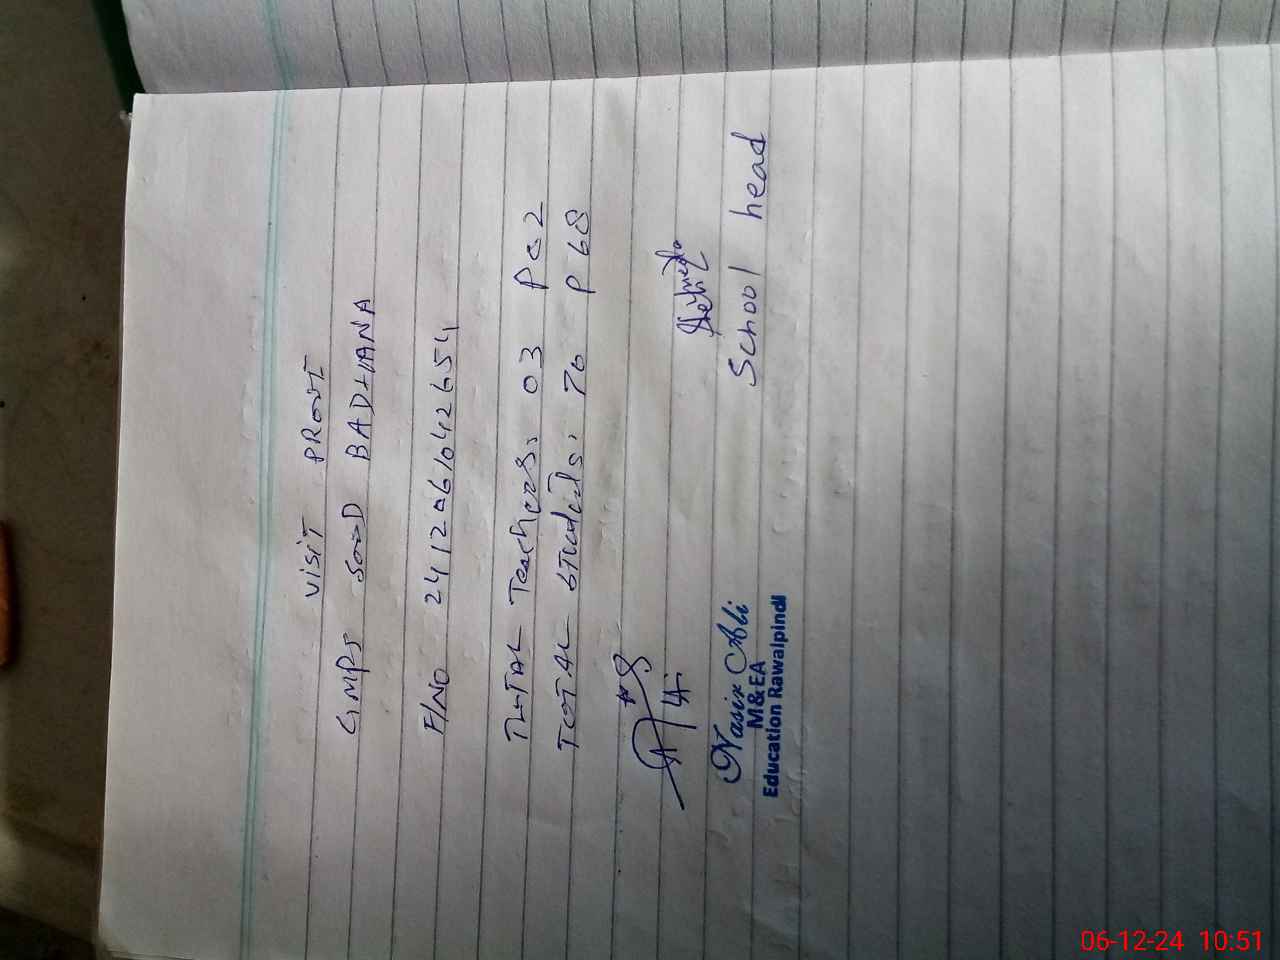 VISIT PROOF
GMPS SOOD BADHANA
F/NO 2412061042654
TOTAL Teachers: 03 P 02
TOTAL Students: 70 P 68
School head
Nasir Ali
M&EA
Education Rawalpindi
06-12-24 10:51